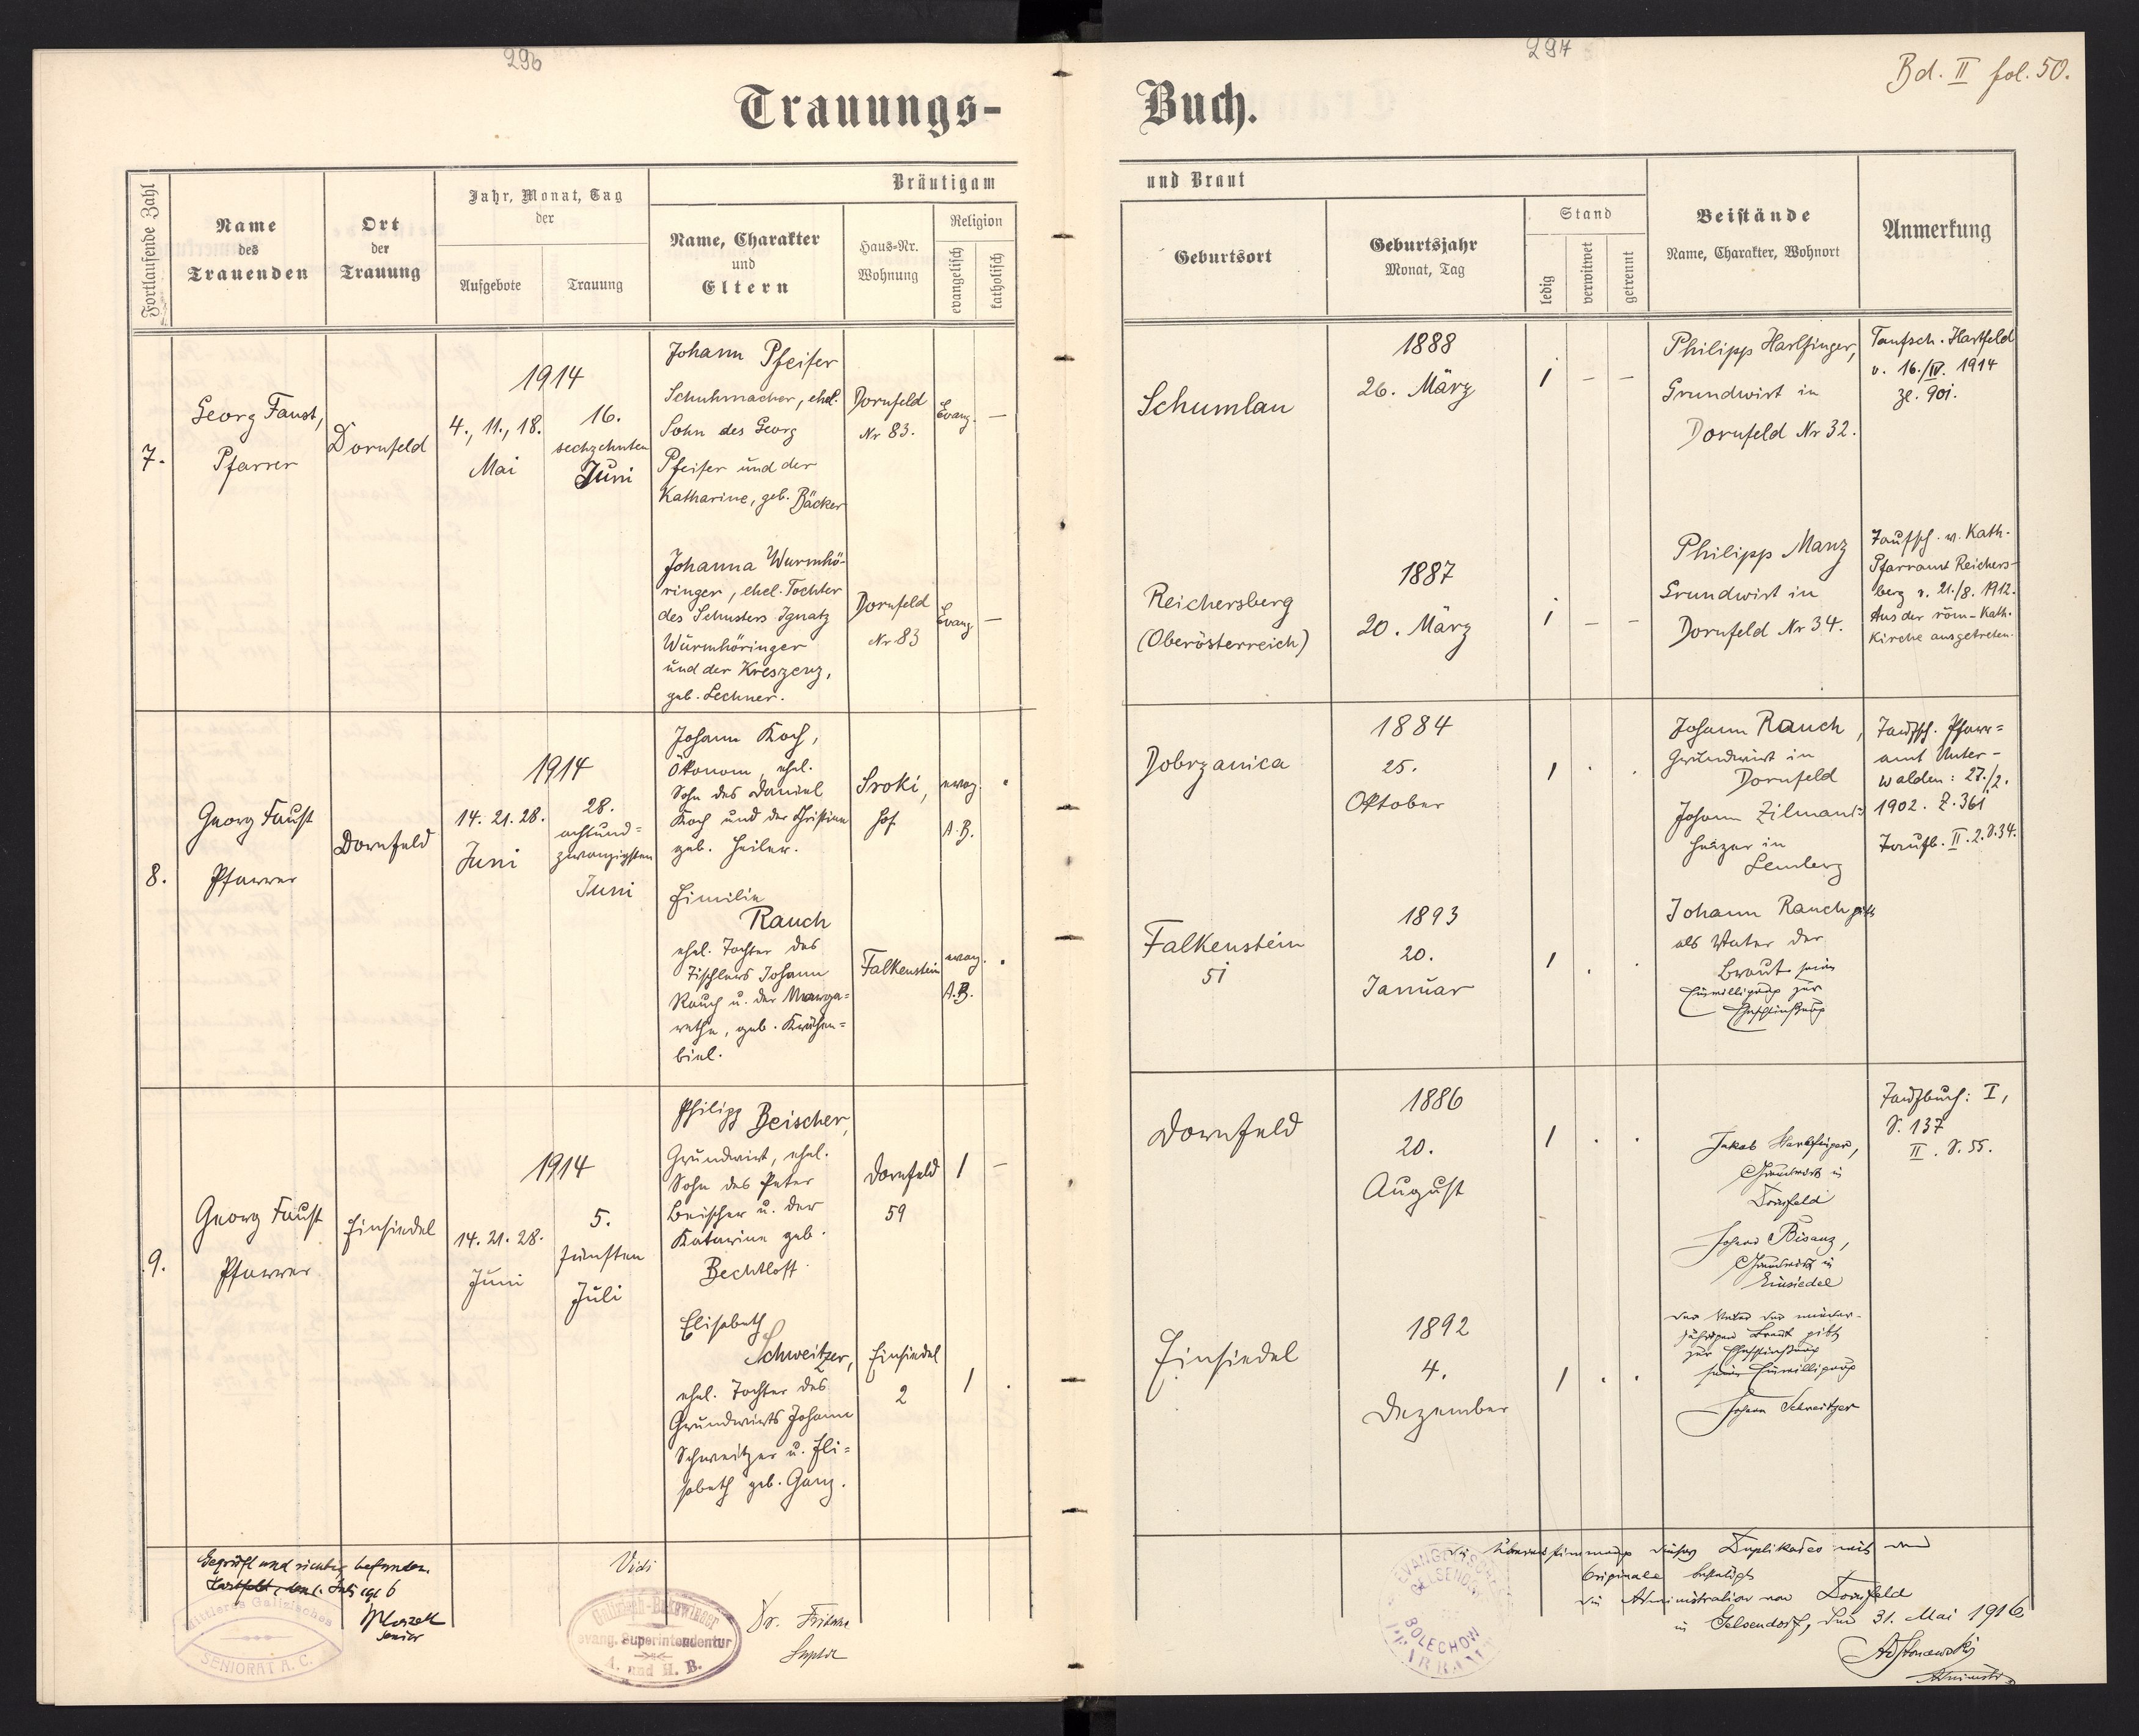 296
Trauungs-
Fortlaufende Zahl
Name
des
Trauenden
Ort
der
Trauung
Jahr, Monat, Tag
der
Aufgebote
Trauung
Bräutigam
Name, Charakter
und
Eltern
Haus-Nr.
Wohnung
Religion
evangelisch
katholisch
7.
Georg Faust,
Pfarrer
Dornfeld
1914
4., 11., 18.
Mai
16.
sechzehnten
Juni
Johann Pfeifer
Schuhmacher, ehel.
Sohn des Georg
Pfeifer und der
Katharine, geb. Bäcker
Dornfeld
Nr 83.
Evang.
—
Johanna Wurmhö-
ringer, ehel. Tochter
des Schusters Ignatz
Wurmhöringer
und der Kreszenz,
geb. Lechner.
Dornfeld
Nr 83
Evang.
—
8.
Georg Faust
Pfarrer
Dornfeld
1914
14. 21. 28.
Juni
28.
achtund=
zwanzigsten
Juni
Johann Koch,
Ökonom, ehel.
Sohn des Daniel
Koch und der Christine
geb. Heiler.
Sroki,
Hof
evag.
A.B.
Emilie
Rauch
ehel. Tochter des
Tischlers Johann
Rauch u. der Marga=
rethe, geb. Krähen=
biel.
Falkenstein
evag.
A.B.
9.
Georg Faust
Pfarrer
Einsiedel
1914
14. 21. 28.
Juni
5.
fünften
Juli
Philipp Beischer,
Grundwirt, ehel.
Sohn des Peter
Beischer u. der
Katarine geb.
Bechtloff
Dornfeld
59
1 –
Elisabeth
Schweitzer,
ehel. Tochter des
Grundwirts Johann
Schweitzer u. Eli=
sabeth geb. Ganz.
Einsiedel
2
1 .
Geprüft und richtig befunden.
Hartfeld, den 1. Juli 1916
Senior
Mittleres Galizisches
SENIORAT A. C.
Vidi
Galizisch-Bukowinaer
evang. Superintendentur
A. und H. B.
Dr. Fritsche
Suptdt
297
Bd. II fol. 50.
Buch.
und Braut
Geburtsort
Geburtsjahr
Monat, Tag
Stand
ledig
verwitwet
getrennt
Beistände
Name, Charakter, Wohnort
Anmerkung
Schumlau
1888
26. März
1 – –
Philipp Harlfinger,
Grundwirt in
Dornfeld Nr 32.
Taufsch. Hartfeld
v. 16./IV. 1914
Zl. 901.
Reichersberg
(Oberösterreich)
1887
20. März
1 – –
Philipp Manz
Grundwirt in
Dornfeld Nr 34.
Taufsch. v. Kath.
Pfarramt Reichers-
berg v. 21./8. 1912.
Aus der röm-Kath.
Kirche ausgetreten.
Dobrzanica
1884
25.
Oktober
1 . .
Johann Rauch,
Grundwirt in
Dornfeld
Johann Zilmans
Heizer in
Lemberg
Taufsch. Pfarr=
amt Unter-
walden: 27./2.
1902. Z. 361
Taufb. II. 2. S. 34.
Falkenstein
51
1893
20.
Januar
1 . .
Johann Rauch gibt
als Vater der
Braut seine
Einwilligung zur
Eheschließung
Dornfeld
1886
20.
August
1 . .
Jakob Harlfinger,
Grundwirt in
Dornfeld
Johann Bisanz,
Grundwirt in
Einsiedel
Taufbuch: I,
S. 137
II. S. 55.
Einsiedel
1892
4.
Dezember
1 . .
Der Vater der minder-
jährigen Braut gibt
zur Eheschließung
seine Einwilligung
Johann Schweitzer
Die Übereinstimmung dieses Duplikates mit dem
Originale bestätigt
die Administration von Dornfeld
in Gelsendorf, den 31. Mai 1916
EVANGELISCHES
GELSENDORF
BOLECHOW
PFARRAMT